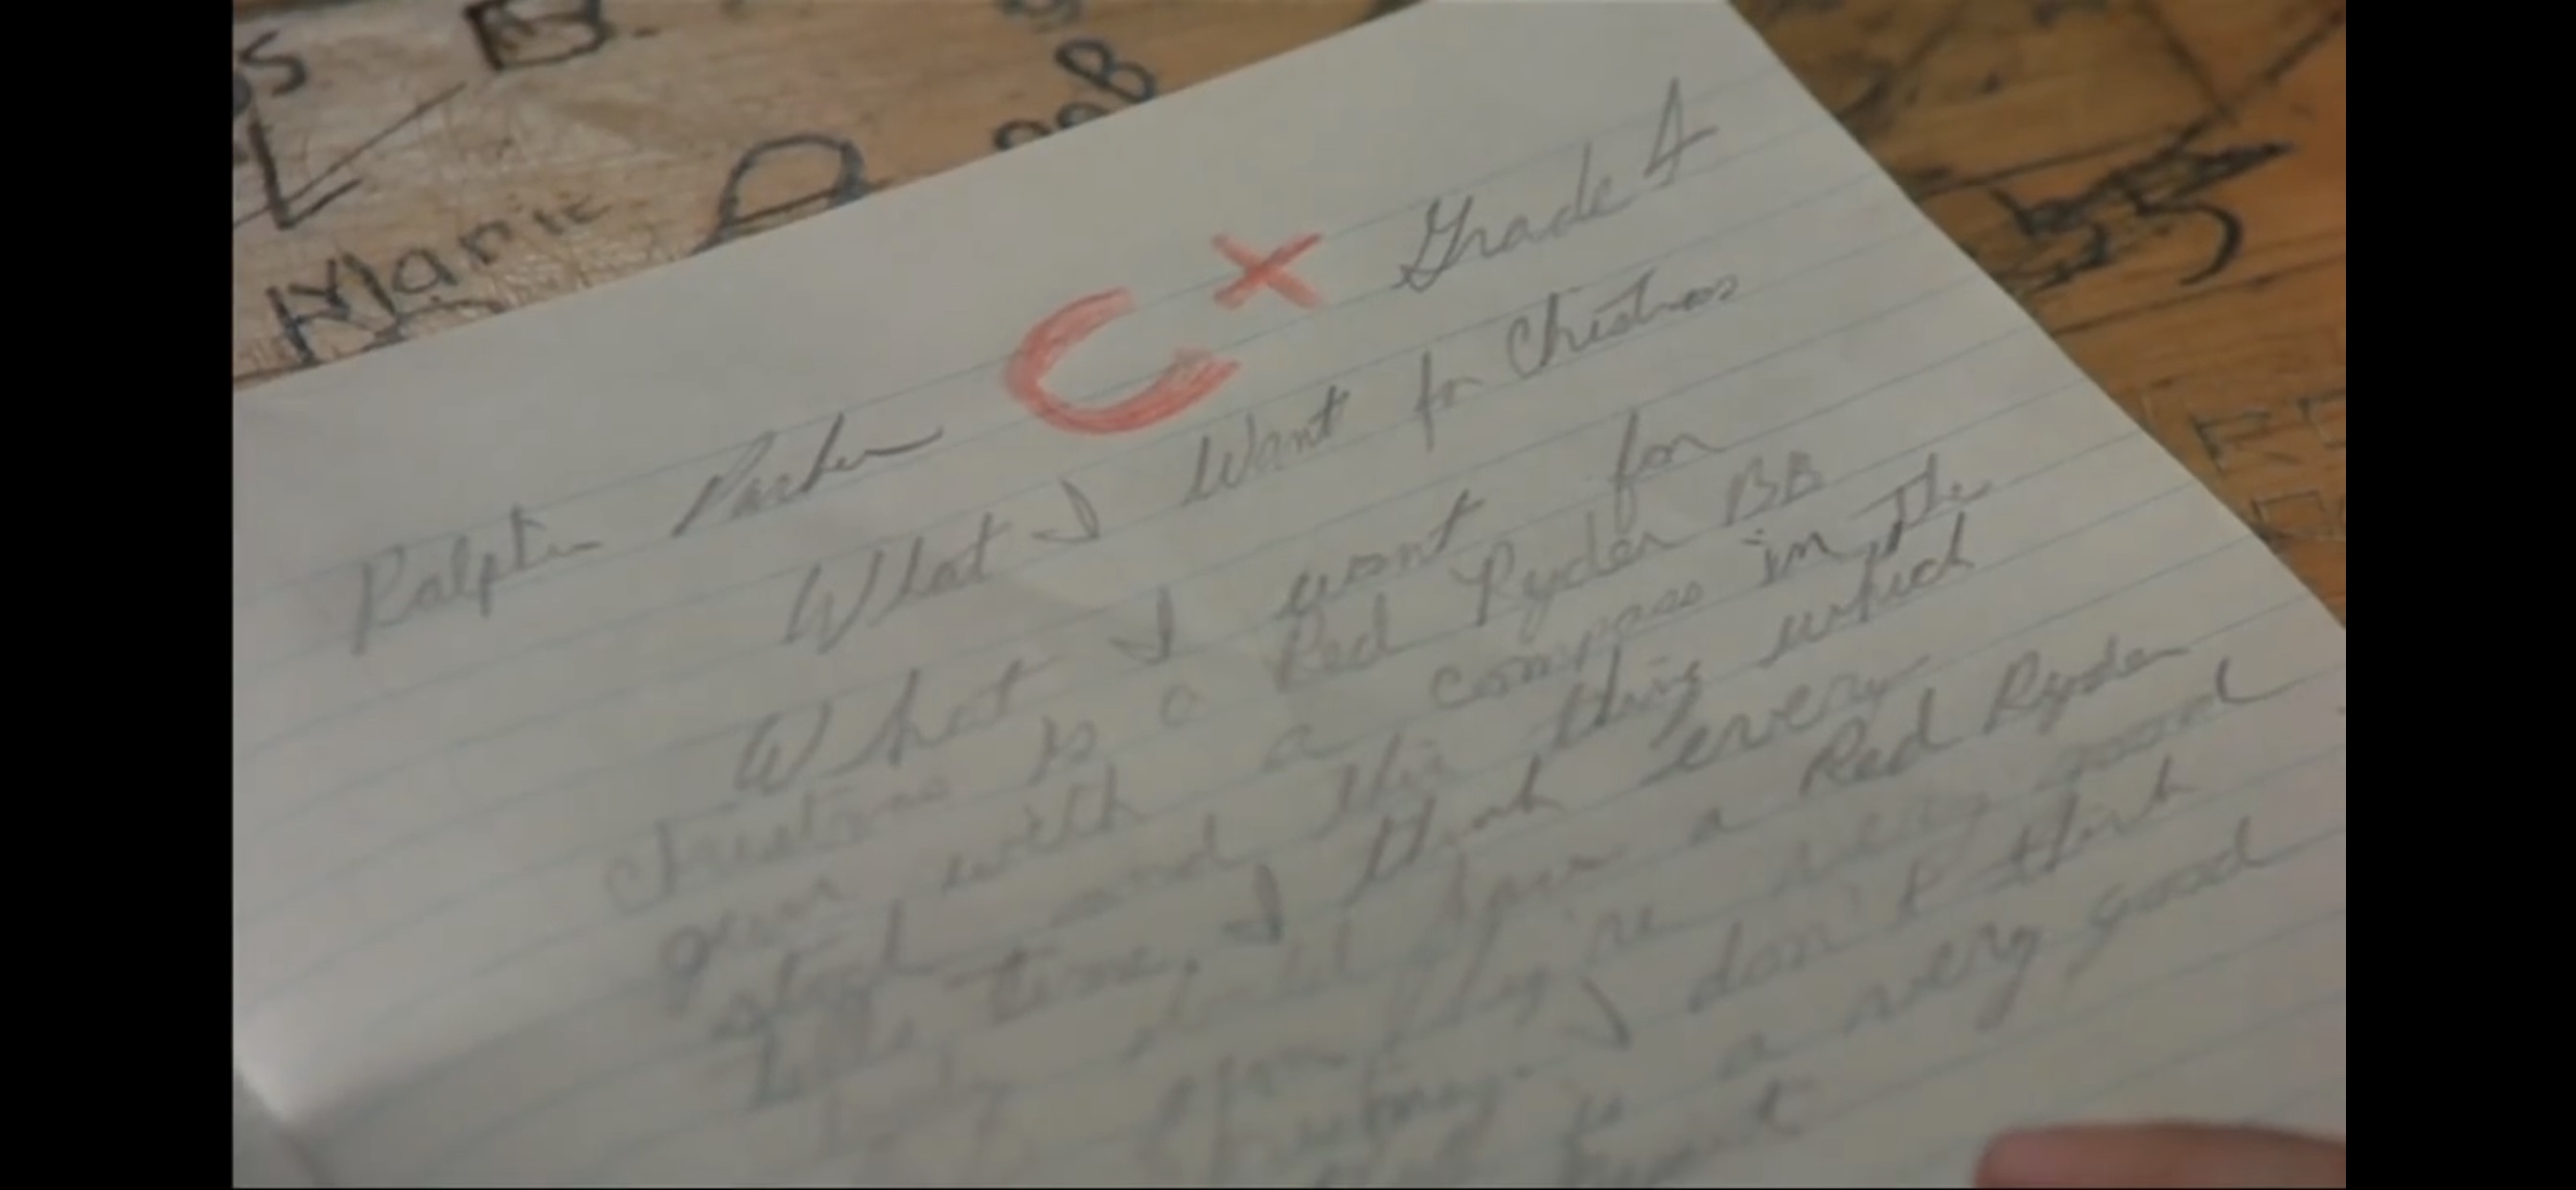 Marie
C+
Grade 4
Ralphie Parker
What I Want for Christmas
What I want for
Christmas is a Red Ryder BB
gun with a compass in the
stock and this thing which
tells time. I think every
should have a Red Ryder
They're very good
for Christmas. I don't think
is a very good